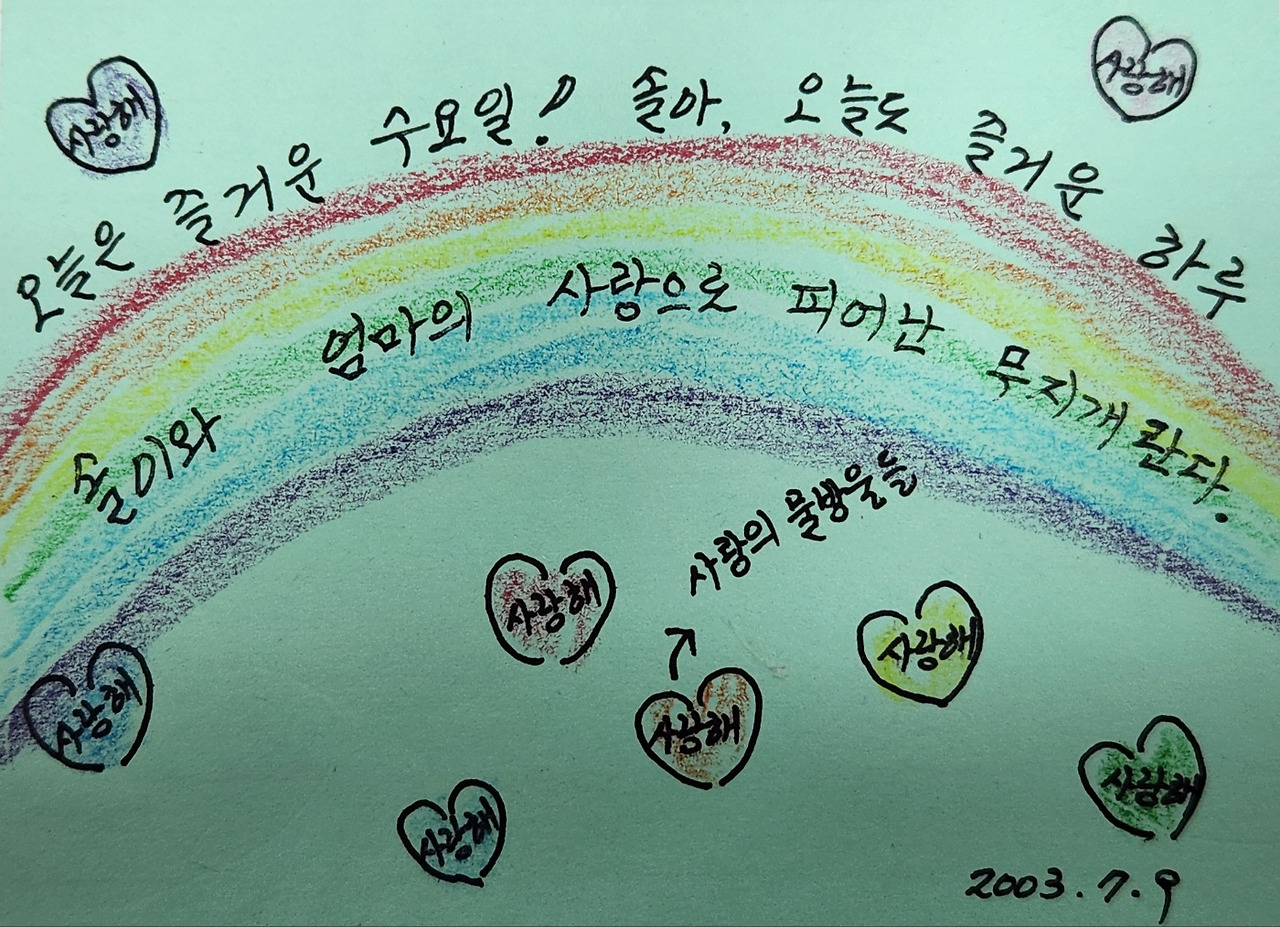 사랑해
사랑해
오늘은 즐거운 수요일! 솔아, 오늘도 즐거운 하루
솔이와 엄마의 사랑으로 피어난 무지개란다.
사랑의 물방울들
사랑해
사랑해
사랑해
사랑해
사랑해
사랑해
2003.7.9